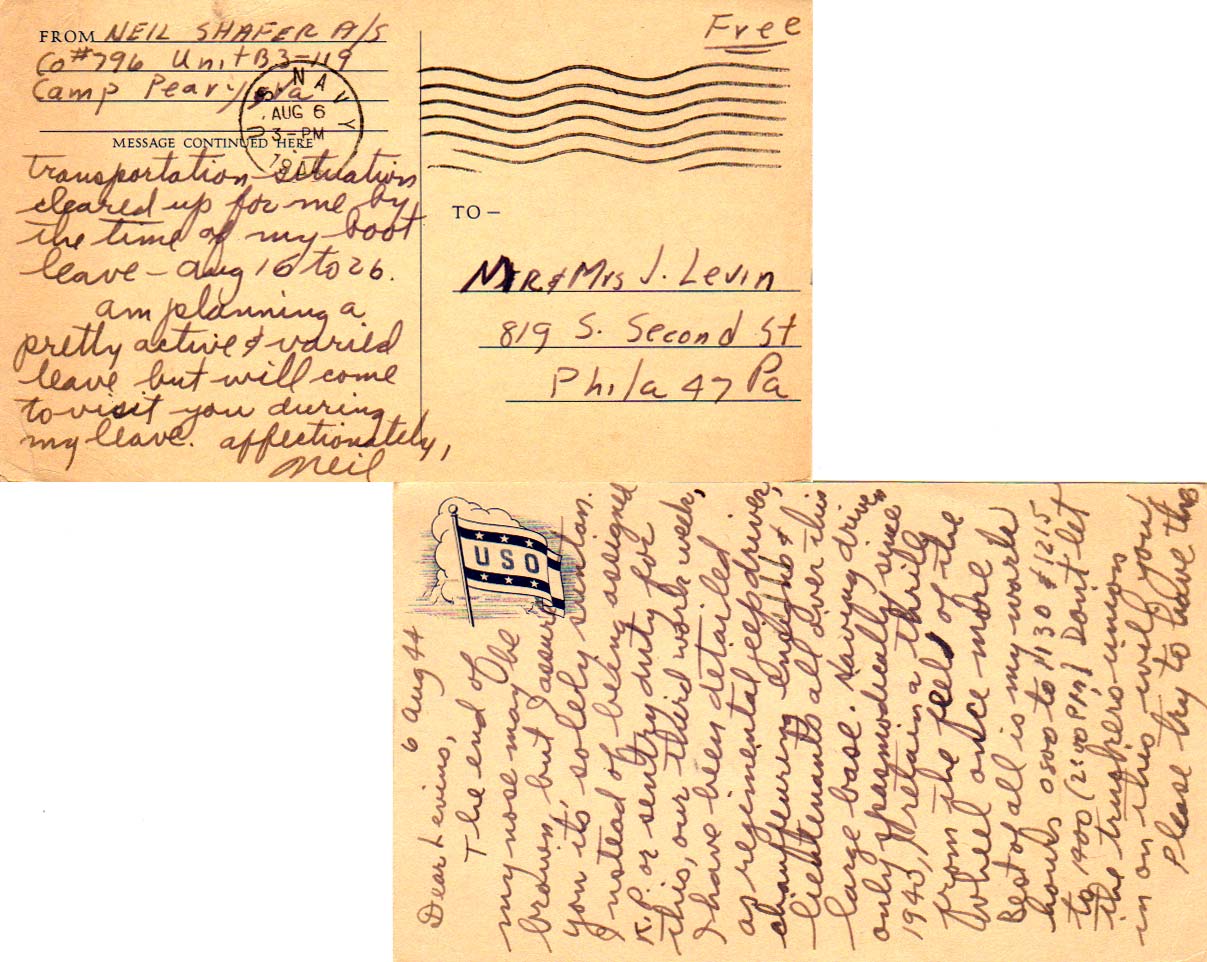 FROM NEIL SHAFER A/S
Co #796 Unit B3-119
Camp Peary, Va
U.S. NAVY
AUG 6
3-PM
Free
MESSAGE CONTINUED HERE
transportation situation
cleared up for me by
the time of my boot
leave - Aug 16 to 26.
Am planning a
pretty active & varied
leave but will come
to visit you during
my leave. Affectionately,
Neil
TO –
MR & Mrs J. Levin
819 S. Second St
Phila 47 Pa
USO
6 Aug 44
Dear Levins,
The end of
my nose may be
brown, but I assure
you it's solely suntan.
Instead of being assigned
K.P. or sentry duty for
this, our third work week,
I have been detailed
as regimental jeep driver,
chauffeuring &
lieutenants all over this
large base. Having driven
only spasmodically since
1940, I retain a thrill
from the feel of the
wheel once more
Best of all is my work
hours 0800 to 1130 & 1215
to 1400 (2:00 PM) Don't let
the truckers union
in on this, will you
Please try to have the